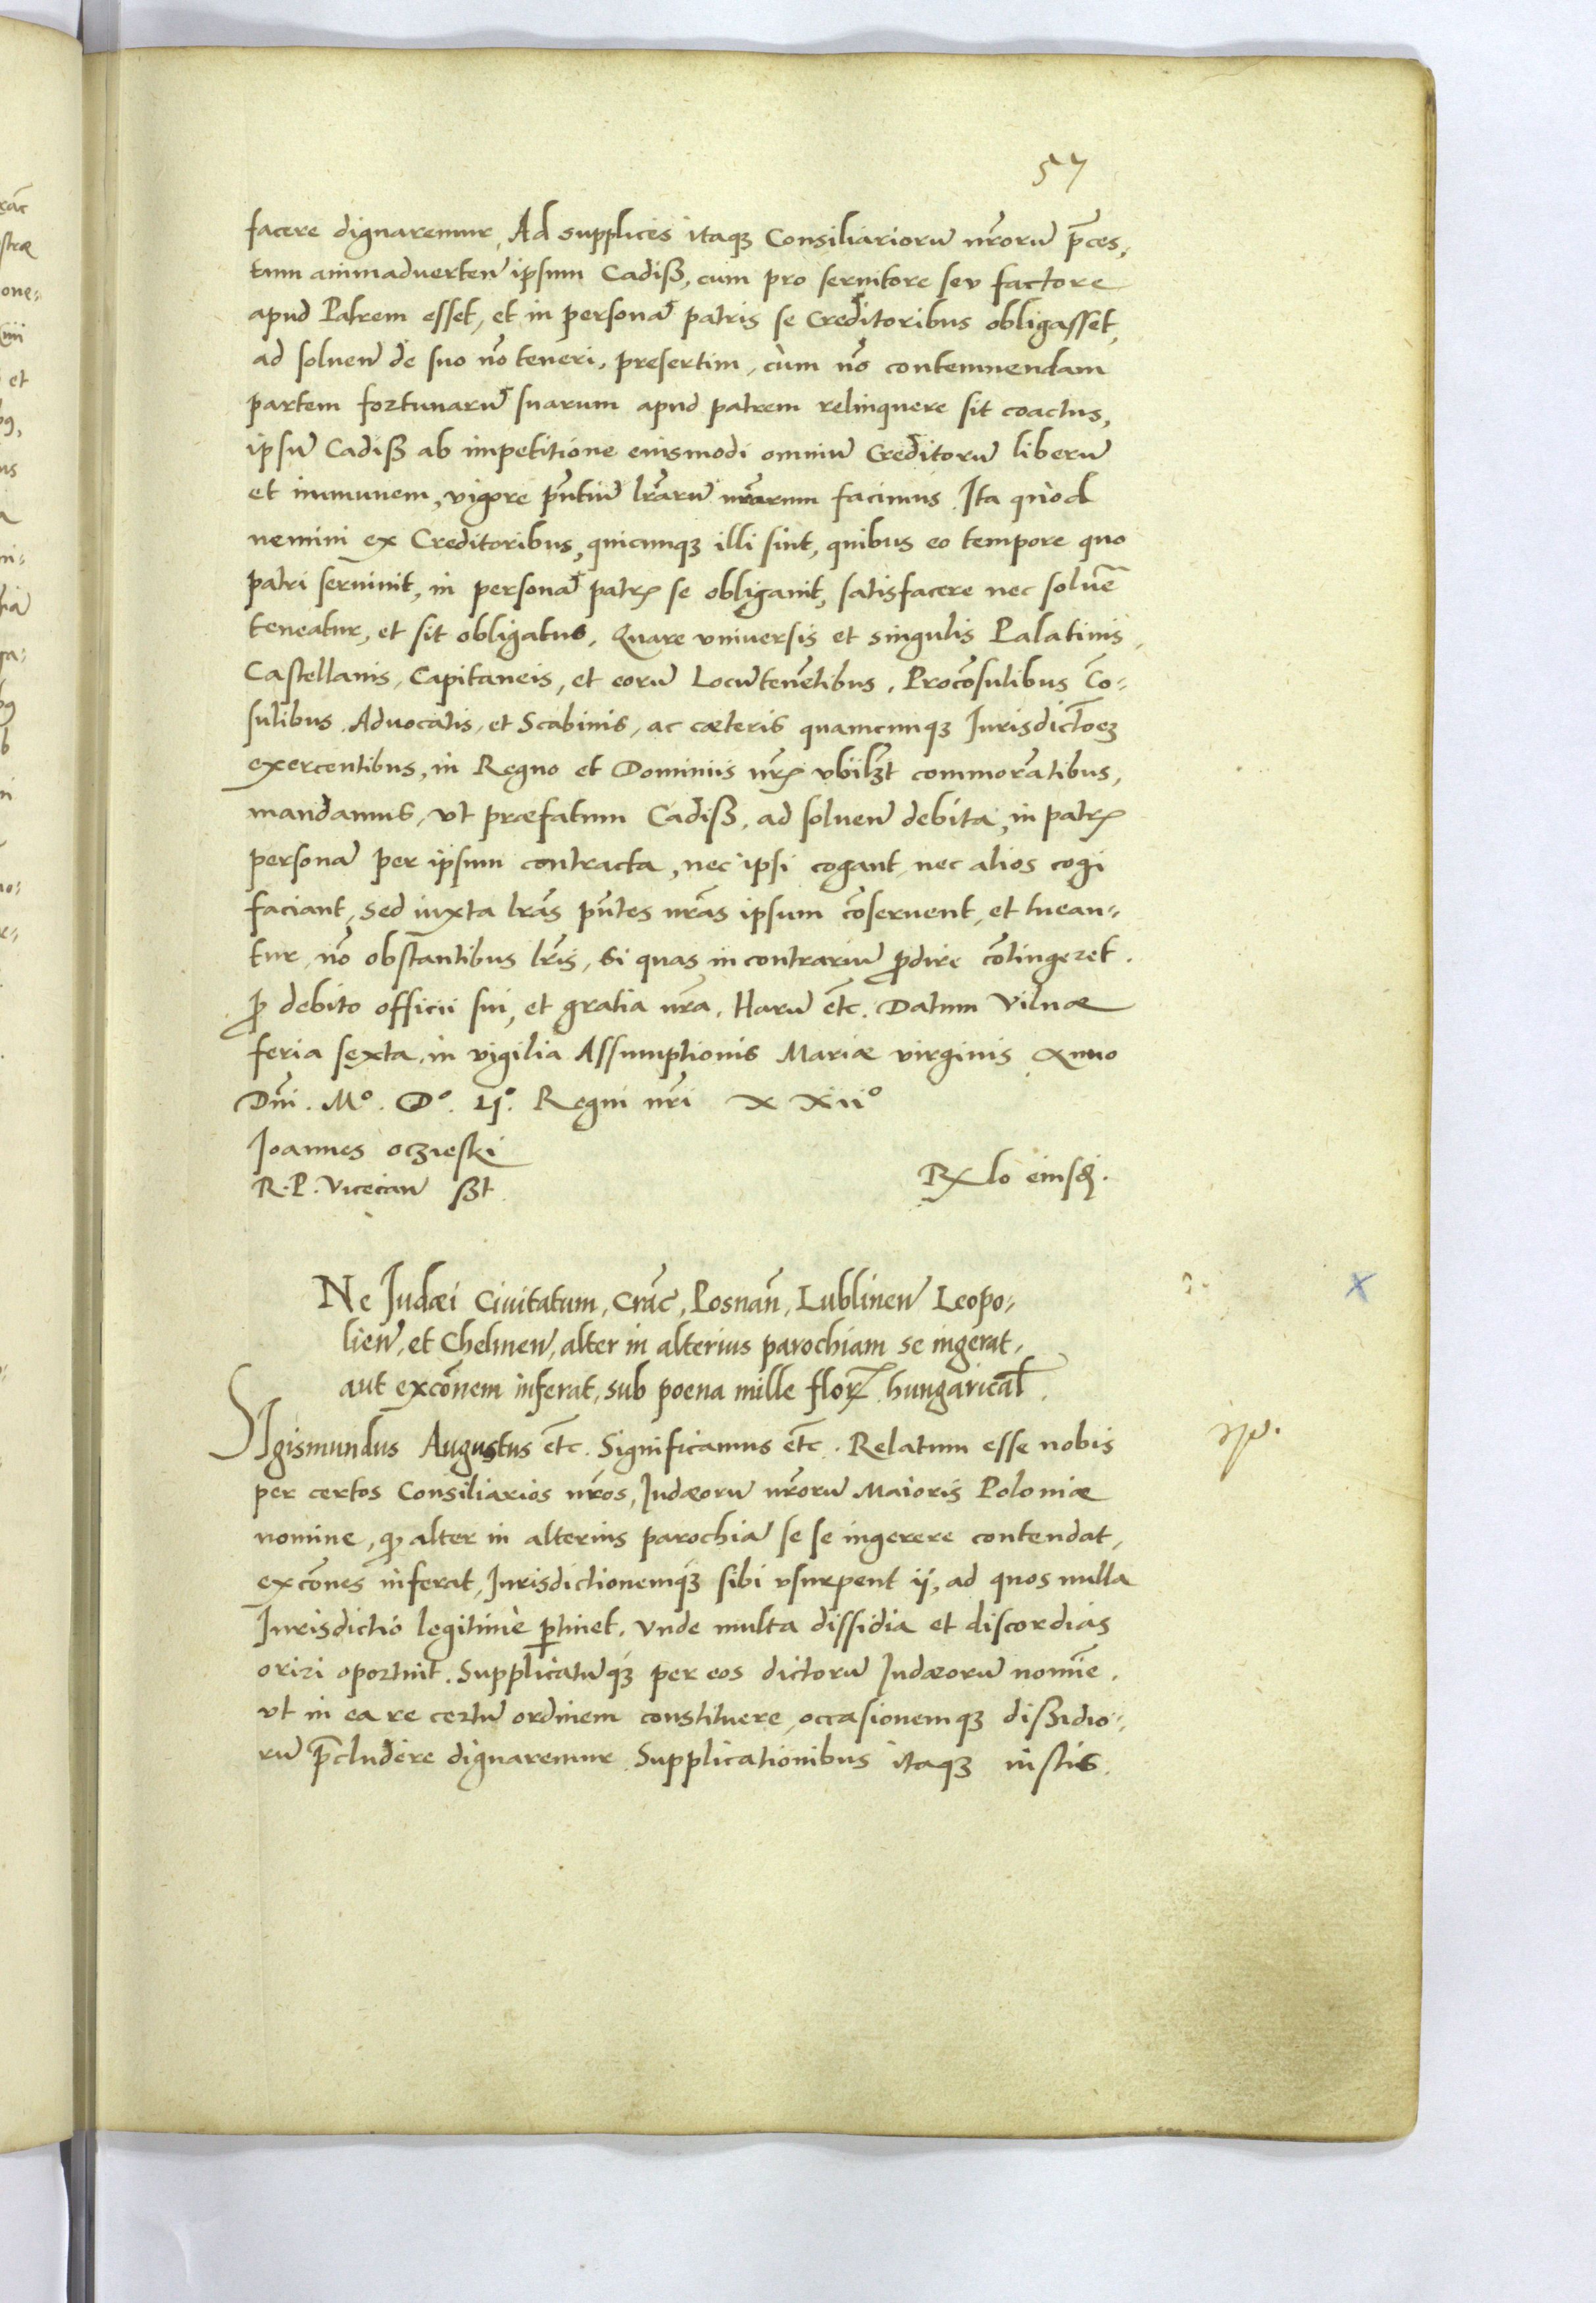 57
facere dignaremur, Ad supplices itaqꝫ Consiliariorū nr̃orū p̄ces,
tum animaduerteñ ipsum Cadiß, cum pro seruitore seu factore
apud Patrem esset, et in personā patris se Creditoribus obligasset,
ad solueñ de suo nō teneri, presertim, cùm nō contemnendam
partem fortunarū suarum apud patrem relinquere sit coactus,
ipsū Cadiß ab impetitione eiusmodi omniū Creditorū liberū
et immunem, vigore pñtiū lr̃arū nr̃arum facimus. Ita quòd
nemini ex Creditoribus, quicunqꝫ illi sint, quibus eo tempore quo
patri seruiuit, in personā patrꝭ se obligauit, satisfacere nec soluē
teneatur, et sit obligatus. Quare vniuersis et singulis Palatinis,
Castellanis, Capitaneis, et eorū Locūtenētibus, Procōsulibus Cō-
sulibus Aduocatis, et Scabinis, ac cæteris quamcunqꝫ Jurisdictōeꝫ
exercentibus, in Regno et Dominiis nr̃ꝭ vbilꝫt commorātibus,
mandamus, vt præfatum Cadiß, ad solueñ debita, in patrꝭ
personā per ipsum contracta, nec ipsi cogant, nec alios cogi
faciant, sed iuxta lr̃as pñtes nr̃as ipsum cōseruent, et tuean-
tur, nō obstantibus lr̃is, si quas in contrariū ꝓdire cōtingeret.
ꝓ debito officii sui, et gratia nr̃a. Harū etc̄. Datum Vilnæ
feria sexta, in vigilia Assumptionis Mariæ virginis Anno
Dñi. Mº. Dº. Ljº. Regni nr̃i XXiiº
Joannes oczieski
R. P. Vicecañ sßt
Rꝭlo eiusdꝭ.
Ne Judæi Ciuitatum, Crãc, Posnañ, Lublineñ Leopo-
lieñ, et Chelmeñ, alter in alterius parochiam se ingerat,
aut excōnem inferat, sub poena mille florꝭ. hungarical̃.
SIgismundus Augustus etc̄. Significamus etc̄. Relatum esse nobis
per certos Consiliarios nr̃os, Judæorū nr̃orū Maioris Poloniæ
nomine, ꝙ alter in alterius parochiā se se ingerere contendat,
excōnes inferat, Jurisdictionemqꝫ sibi vsurpent ij, ad quos nulla
Jurisdictio legitimè ꝑtinet. Vnde multa dissidia et discordias
oriri oportuit. Supplicatūqꝫ per eos dictorū Judæorū nomīe.
vt in ea re certū ordinem constituere, occasionemqꝫ dißidio-
rū p̄cludere dignaremur. Supplicationibus itaqꝫ iustis